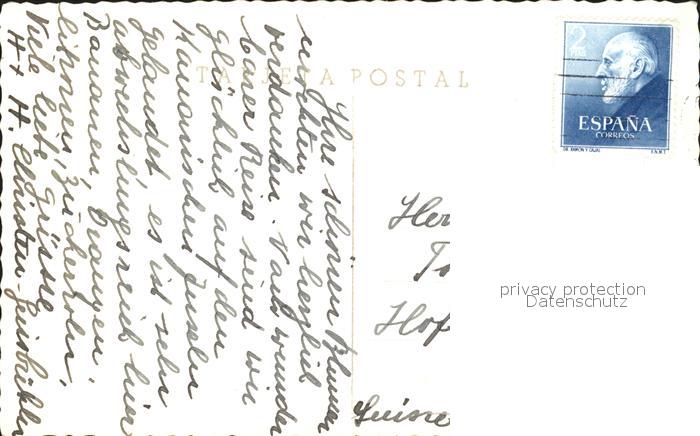 TARJETA POSTAL
2
PTAS
ESPAÑA
CORREOS
DR. RAMON Y CAJAL
F.N.M.T.
Ihre schönen Blumen
möchten wir herzlich
verdanken. Nach wunder
barer Reise sind wir
glücklich auf den
Kanarischen Inseln
gelandet es ist sehr
abwechslungsreich hier
Bananen, Orangen,
Citronen, Zuckerrohr.
Viele liebe Grüsse
H + H. Christen-
Her
Hof
Suisse
privacy protection
Datenschutz